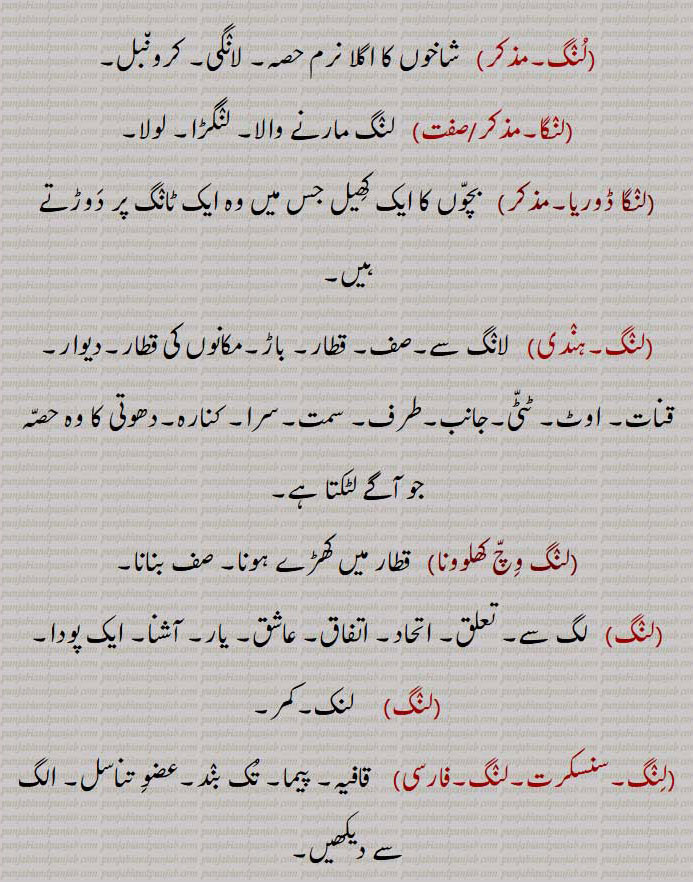 (لُنگ۔مذکر) شاخوں کا اگلا نرم حصہ۔ لانگی۔ کرونبل۔
(لنگا۔مذکر/صفت) لنگ مارنے والا۔ لنگڑا۔ لولا۔
(لنگا ڈوریا۔مذکر) بچّوں کا ایک کِھیل جس میں وہ ایک ٹانگ پر دَوڑتے
ہیں۔
(لنگ۔ہندی) لانگ سے۔صف۔ قطار۔ باڑ۔مکانوں کی قطار۔دیوار۔
قنات۔ اوٹ۔ ٹٹّی۔جانب۔طرف۔ سمت۔سرا۔ کنارہ۔دھوتی کا وہ حصّہ
جو آگے لٹکتا ہے۔
(لنگ وِچّ کھلوونا) قطار میں کھڑے ہونا۔ صف بنانا۔
(لنگ) لگ سے۔ تعلق۔ اتحاد۔ اتفاق۔ عاشق۔ یار۔ آشنا۔ ایک پودا۔
(لنگ) لنک۔کمر۔
(لِنگ۔سنسکرت۔لنگ۔فارسی) قافیہ۔ پیما۔ تُک بند۔عضوِ تناسل۔ الگ
سے دیکھیں۔